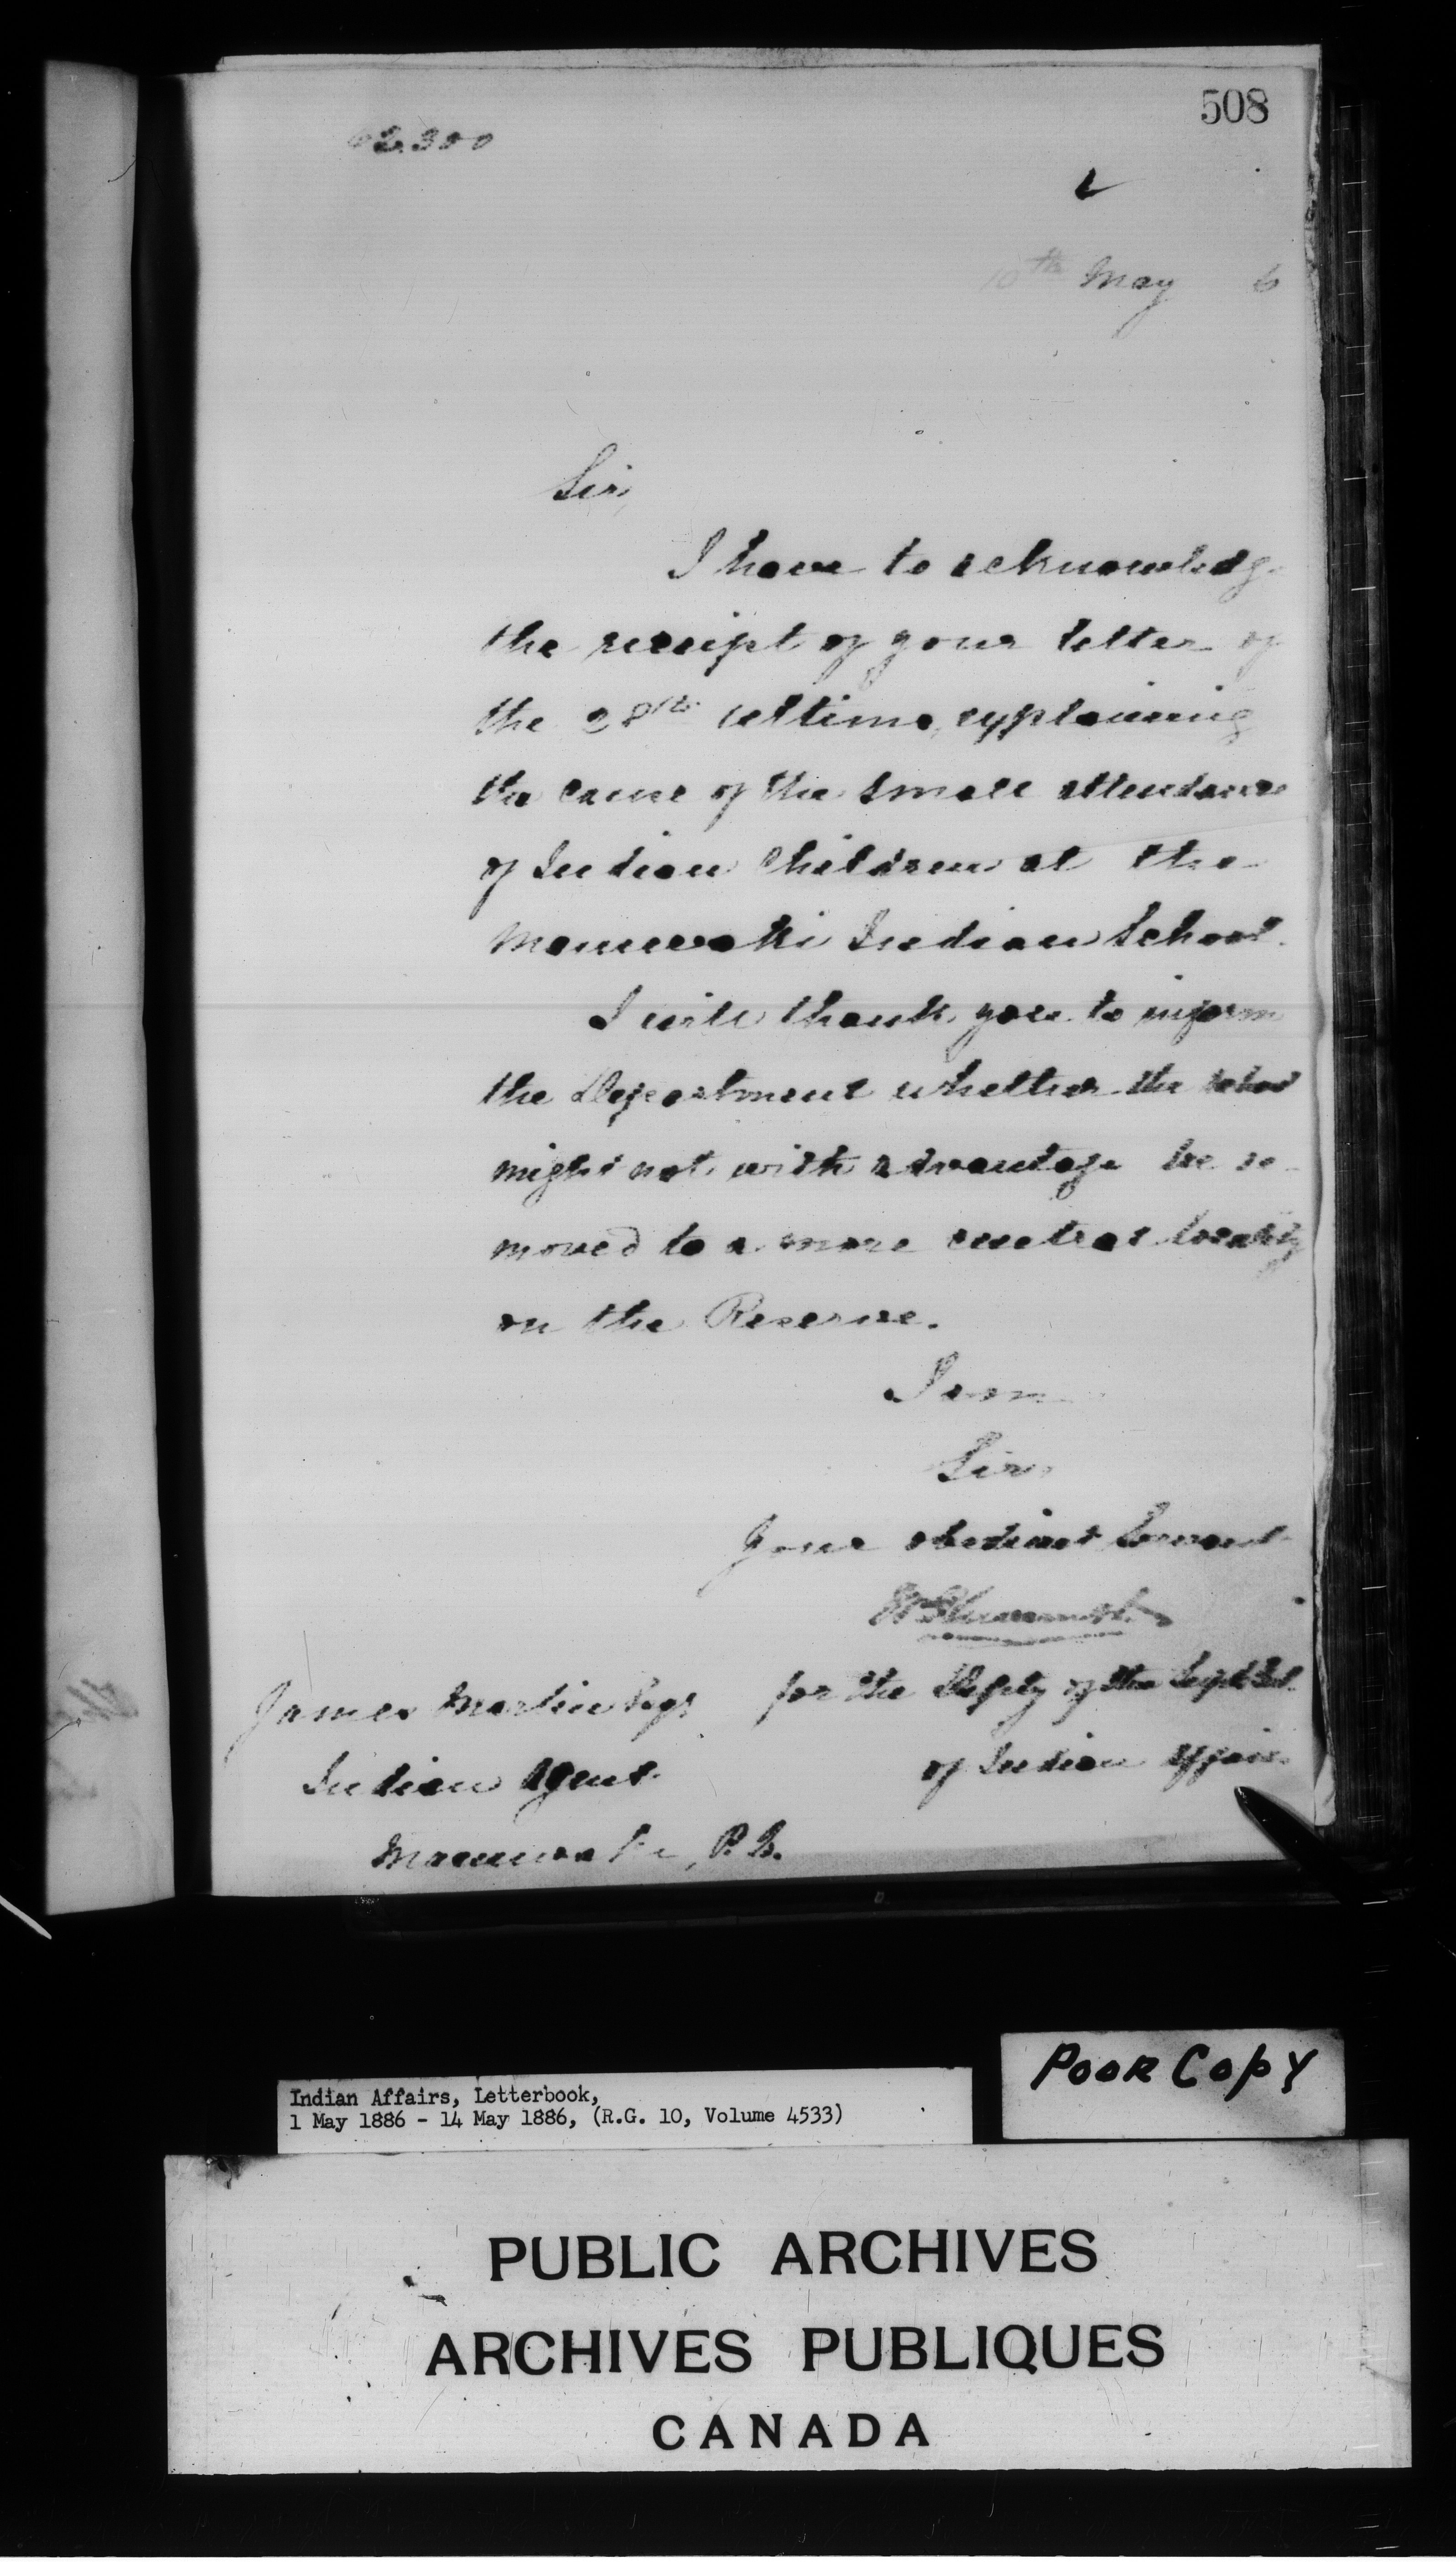 508
2.300
10th May 6
Sir,
I have to acknowledge
the receipt of your letter of
the 28th ultimo, explaining
the cause of the small attendance
of Indian Children at the
Maniwaki Indian School.
I will thank you to inform
the Department whether the school
might not with advantage be re-
moved to a more central locality
on the Reserve.
I am
Sir,
Your obedient Servant
James Martin Esqr for the Deputy of the Supt Genl
Indian Agent of Indian Affairs
Maniwaki, P.Q.
POOR COPY
Indian Affairs, Letterbook,
1 May 1886 - 14 May 1886, (R.G. 10, Volume 4533)
PUBLIC ARCHIVES
ARCHIVES PUBLIQUES
CANADA